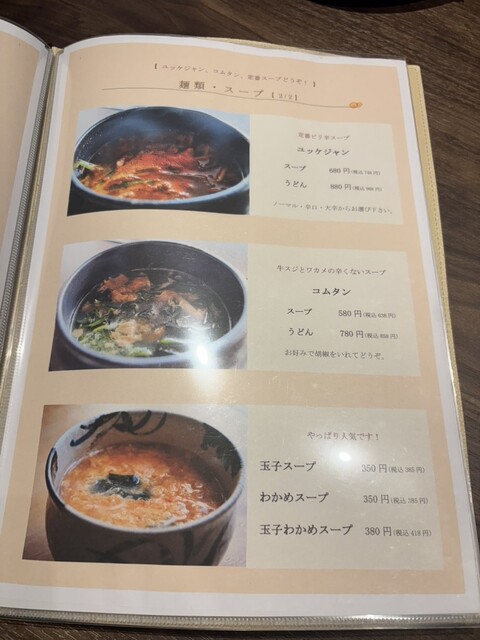 [ ユッケジャン、コムタン、定番スープどうぞ！ ]
麺類・スープ [2/2]
定番ピリ辛スープ
ユッケジャン
スープ 680円(税込748円)
うどん 880円(税込968円)
ノーマル・辛口・大辛からお選び下さい。
牛スジとワカメの辛くないスープ
コムタン
スープ 580円(税込638円)
うどん 780円(税込858円)
お好みで胡椒をいれてどうぞ。
やっぱり人気です！
玉子スープ 350円(税込385円)
わかめスープ 350円(税込385円)
玉子わかめスープ 380円(税込418円)